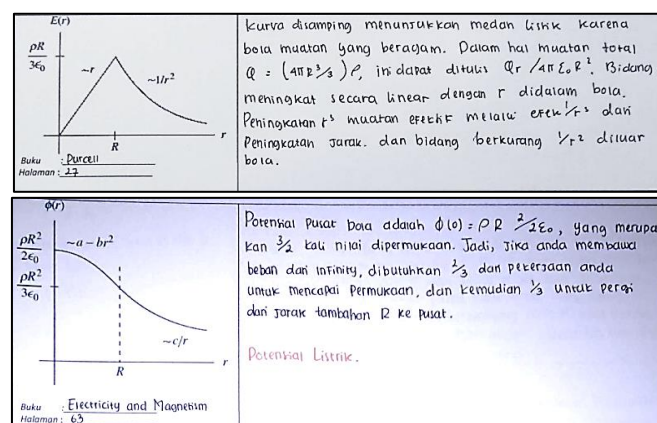 E(r)
ρR
3ϵ0
~r
~1/r²
r
R
Buku : Purcell
Halaman : 27
Kurva disamping menunjukkan medan listrik karena
bola muatan yang beragam. Dalam hal muatan total
Q = (4πR³/3) ρ, ini dapat ditulis Qr / 4π ε₀ R². Bidang
meningkat secara linear dengan r didalam bola.
Peningkatan r³ muatan efektif melalui efek 1/r³ dari
Peningkatan jarak. dan bidang berkurang 1/r² diluar
bola.
ϕ(r)
ρR²
2ϵ0
~a − br²
ρR²
3ϵ0
~c/r
r
R
Buku : Electricity and Magnetism
Halaman : 63
Potensial pusat bola adalah ϕ(0) = ρ R ²/2ε₀, yang merupa
kan 3/2 kali nilai dipermukaan. Jadi, jika anda membawa
beban dari infinity, dibutuhkan 2/3 dari pekerjaan anda
untuk mencapai permukaan, dan kemudian 1/3 untuk pergi
dari jarak tambahan R ke pusat.
Potensial Listrik.